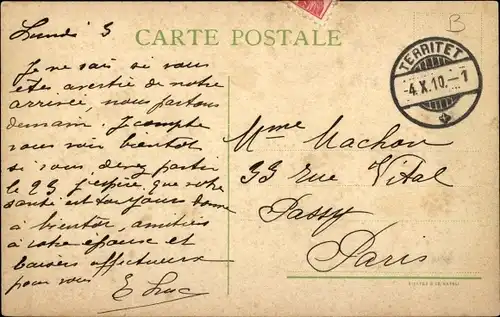 Lundi 3
CARTE POSTALE
B
TERRITET
-4.X.10.-7
Je ne sais si vous
êtes avertie de notre
arrivée, nous partons
demain. Je compte
vous voir bientôt
si vous devez partir
le 23 J'espère que votre
santé est toujours bonne
à bientôt, amitiés
à votre époux et
baisers affectueux
pour vous
Mme Machon
33 rue Vital
Passy
Paris